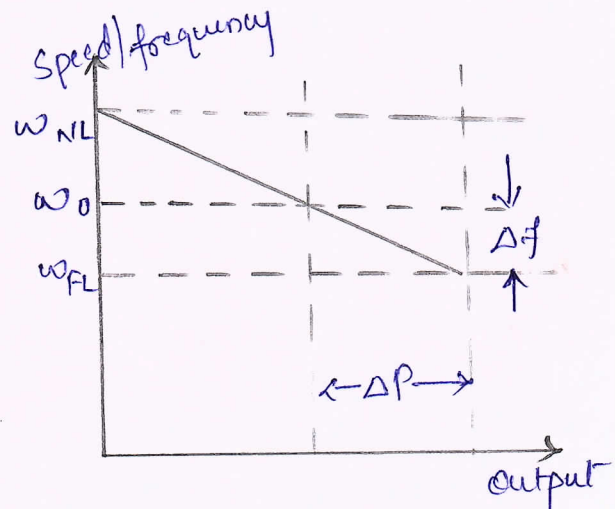 Speed/frequency
ω NL
ω0
Δf
ωFL
ΔP
Output